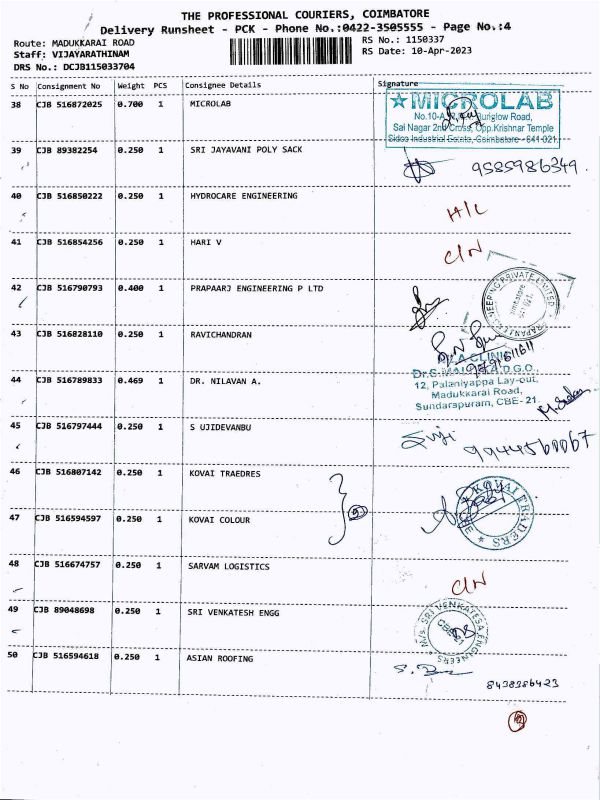 THE PROFESSIONAL COURIERS, COIMBATORE
Delivery Runsheet - PCK - Phone No.:0422-3505555 - Page No.:4
Route: MADUKKARAI ROAD RS No.: 1150337
Staff: VIJAYARATHINAM RS Date: 10-Apr-2023
DRS No.: DCJB115033704
S No Consignment No Weight PCS Consignee Details Signature
38 CJB 516872025 0.700 1 MICROLAB
★ MICROLAB
No.10-A, Bunglow Road,
Sai Nagar 2nd Cross, Opp.Krishnar Temple
Sidco Industrial Estate, Coimbatore - 641 021.
39 CJB 89382254 0.250 1 SRI JAYAVANI POLY SACK
9585986349.
40 CJB 516850222 0.250 1 HYDROCARE ENGINEERING
H/L
41 CJB 516854256 0.250 1 HARI V
C/N
42 CJB 516790793 0.400 1 PRAPAARJ ENGINEERING P LTD
43 CJB 516828110 0.250 1 RAVICHANDRAN
44 CJB 516789833 0.469 1 DR. NILAVAN A.
CLINIC
12, Palaniyappa Lay-out,
Madukkarai Road,
Sundarapuram, CBE- 21.
45 CJB 516797444 0.250 1 S UJIDEVANBU
Suji
9944560067
46 CJB 516807142 0.250 1 KOVAI TRAEDRES
KOVAI TRADERS
47 CJB 516594597 0.250 1 KOVAI COLOUR
48 CJB 516674757 0.250 1 SARVAM LOGISTICS
C/N
49 CJB 89048698 0.250 1 SRI VENKATESH ENGG
M/s. SRI VENKATESA ENGINEERS
50 CJB 516594618 0.250 1 ASIAN ROOFING
8438386423